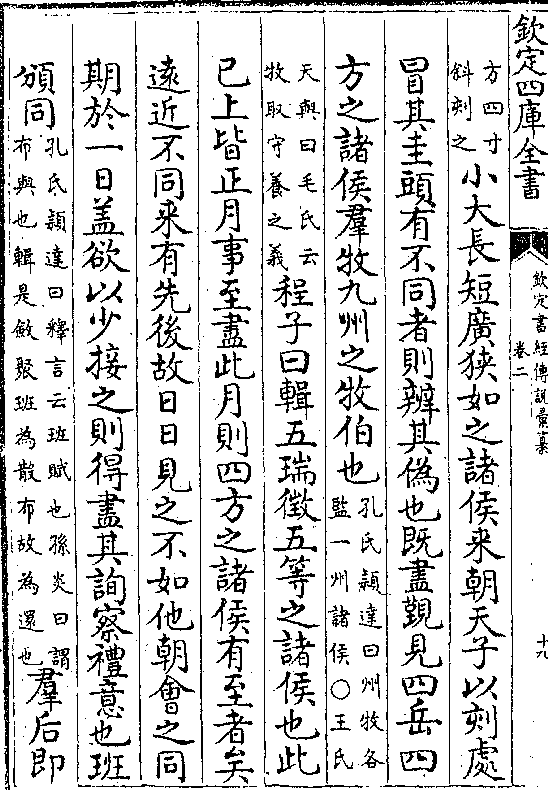 欽定四庫全書
欽定書經傳說彙纂
卷二
十九
方四寸
斜刻之
小大長短廣狹如之諸侯来朝天子以刻處
冒其圭頭有不同者則辨其偽也既盡覲見四岳四
方之諸侯羣牧九州之牧伯也
孔氏穎達曰州牧各
監一州諸侯○王氏
天與曰毛氏云
牧取守養之義
程子曰輯五瑞徵五等之諸侯也此
已上皆正月事至盡此月則四方之諸侯有至者矣
遠近不同来有先後故日日見之不如他朝會之同
期於一日盖欲以少接之則得盡其詢察禮意也班
頒同
孔氏穎達曰釋言云班賦也孫炎曰謂
布與也輯是斂聚班為散布故為還也
羣后即